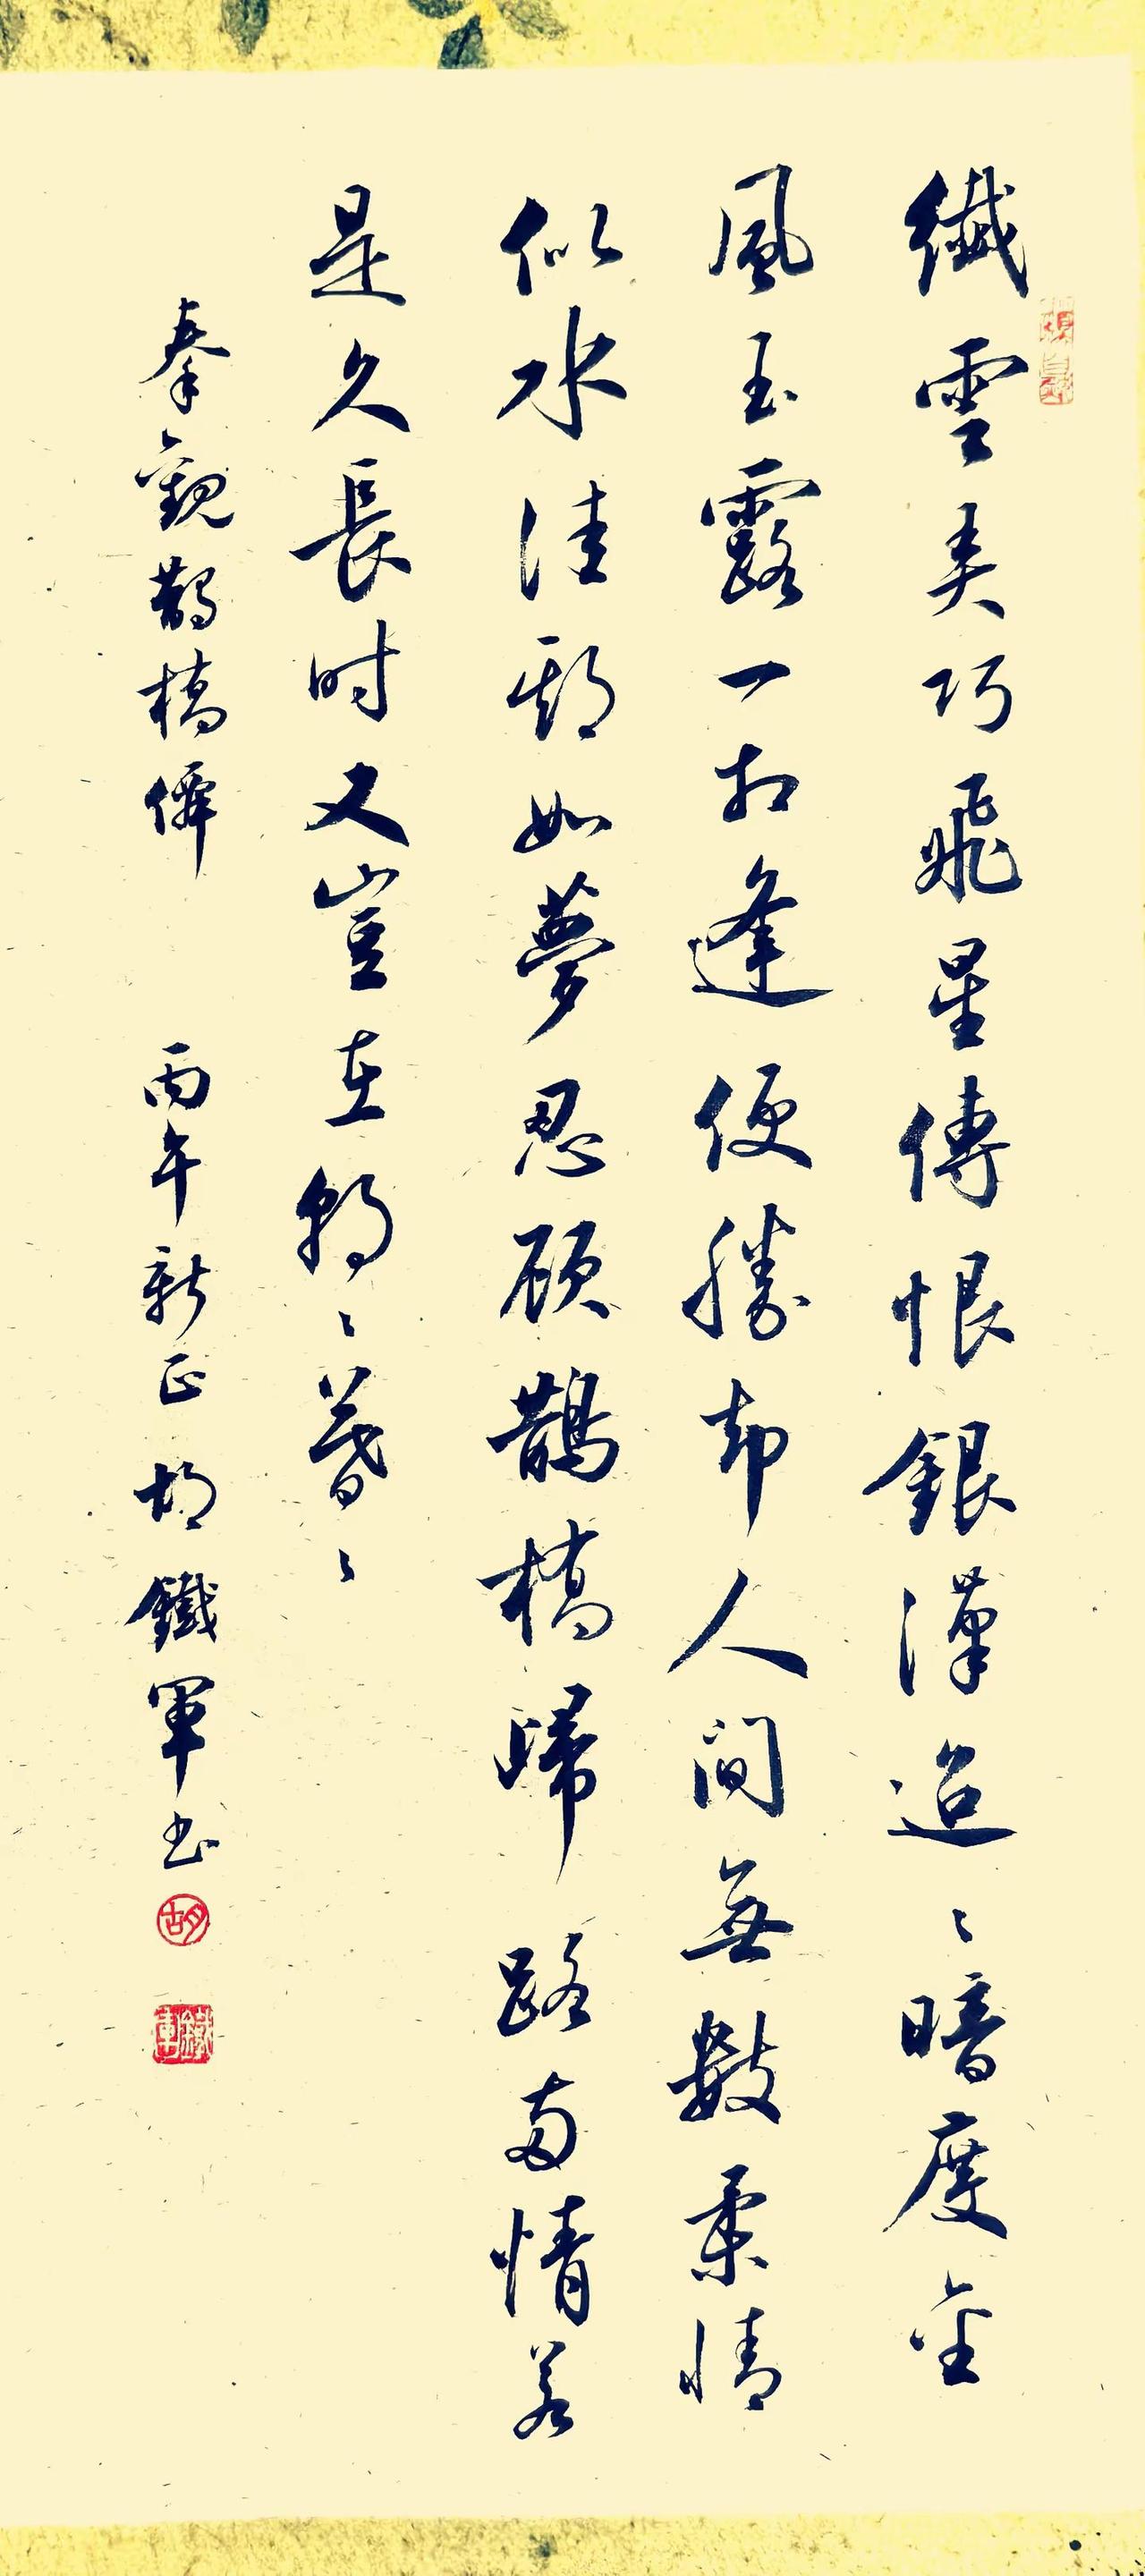 纖雲弄巧飛星傳恨銀漢迢〻暗度金
風玉露一相逢便勝却人间無數柔情
似水佳期如夢忍顾鵲橋歸路两情若
是久長时又豈在朝〻暮〻
秦觀鵲橋僊 丙午新正胡鐵軍书
胡
鐵軍